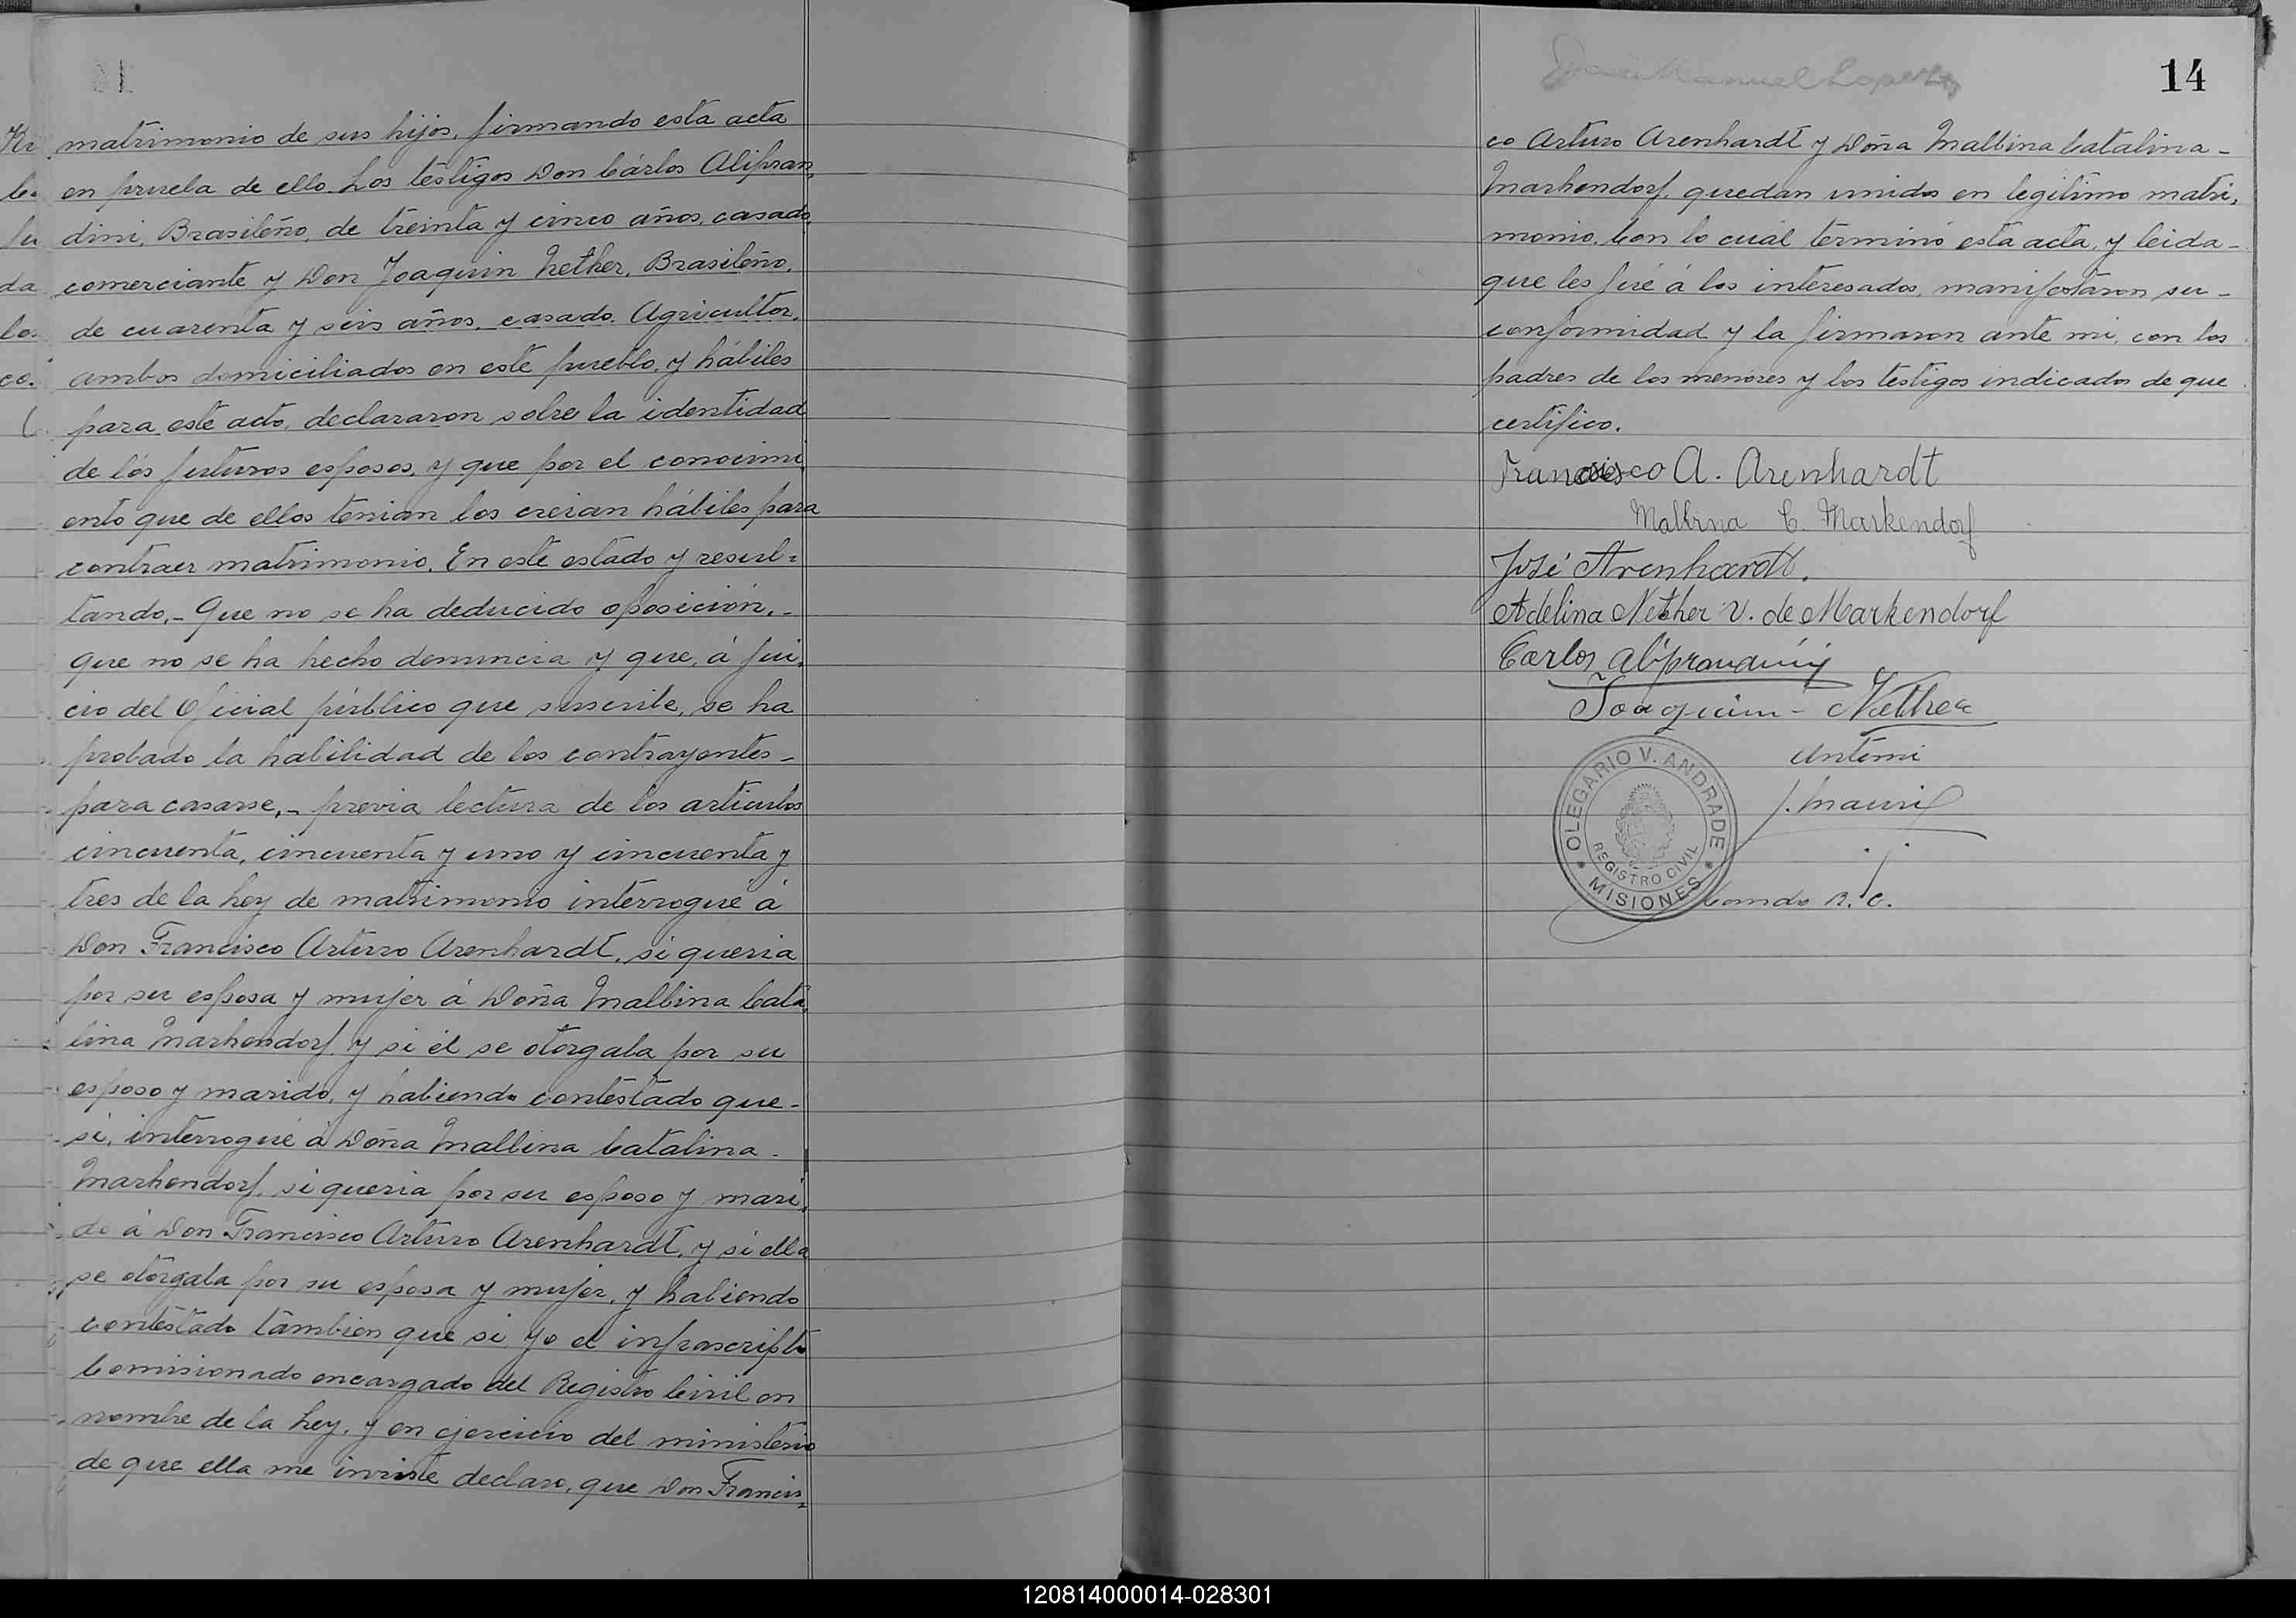 matrimonio de sus hijos, firmando esta acta
en prueba de ello. Los testigos Don Cárlos Alipran,
dini, Brasileño, de treinta y cinco años, casado,
comerciante y Don Joaquin Nether, Brasileño,
de cuarenta y seis años, casado, Agricultor,
ambos domiciliados en este pueblo, y hábiles
para este acto, declararon sobre la identidad
de los futuros esposos, y que por el conocimi,
ento que de ellos tenian los creian hábiles para
contraer matrimonio. En este estado y resul=
tando,- Que no se ha deducido oposición,-
que no se ha hecho denuncia y que, á jui,
cio del Oficial público que suscribe, se ha
probado la habilidad de los contrayentes-
para casarse,- previa lectura de los articulos
cincuenta, cincuenta y uno y cincuenta y
tres de la Ley de matrimonio interrogué á
Don Francisco Arturo Arenhardt, si queria
por su esposa y mujer á Doña Malbina Cata,
lina Markendorf, y si él se otorgaba por su
esposo y marido, y habiendo contestado que-
si, interrogué á Doña Malbina Catalina-
Markendorf, si queria por su esposo y mari,
do á Don Francisco Arturo Arenhardt, y si ella
se otorgaba por su esposa y mujer, y habiendo
contestado tambien que si, yo el infrascripto
Comisionado encargado del Registro Civil en
nombre de la Ley, y en ejercicio del ministerio
de que ella me inviste declaro, que Don Francis=
Manuel Lopez
14
co Arturo Arenhardt y Doña Malbina Catalina-
Markendorf, quedan unidos en legitimo matri,
monio. Con lo cual terminó esta acta, y leida-
que les fué á los interesados, manifestaron su-
conformidad y la firmaron ante mi, con los
padres de los menores y los testigos indicados de que
certifico.
Francisco A. Arenhardt
Malbina C. Markendorf
José Arenhardt.
Adelina Nether v. de Markendorf
Carlos Aliprandini
Joaquim - Nether
Antemi
J. Mauri
OLEGARIO V. ANDRADE
REGISTRO CIVIL
* MISIONES *
Comdo R. C.
120814000014-028301